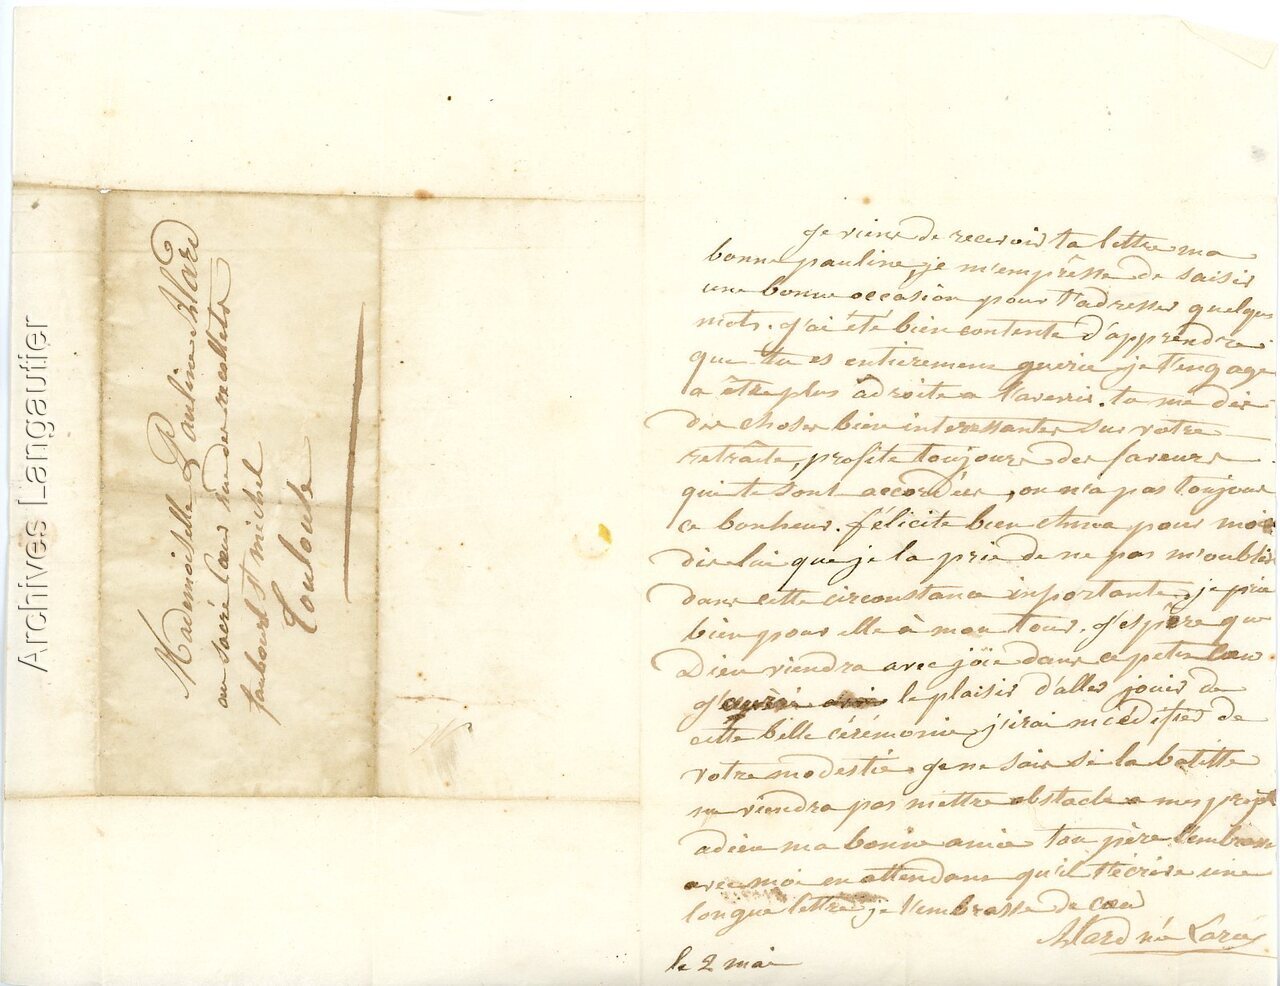 Archives Langautier
Mademoiselle Pauline Alard
au sacré Cœur rue des recollets
faubourt St michel
Toulouse
je viens de recevoir ta lettre ma
bonne pauline, je m'emprêsse de saisir
une bonne occasion pour t'adresser quelques
mots. j'ai été bien contente d'apprendre
que tu es entierement guérie je t'engage
a être plus adroite a l'avenir. tu me dis
des choses bien interessantes sur votre
retrâite, profite toujours des faveurs
qui te sont accordées, on n'a pas toujours
ce bonheur. félicite bien pour moi
dis lui que je la prie de ne pas m'oublier
dans cette circonstance importante, je prie
bien pour elle à mon tour. j'espère que
Dieu viendra avec jôie dans ce petit Cœur
j' le plaisir d'aller jouir de
cette belle cérémonie, j'irai m'édifier de
votre modestie. je ne sais si la
ne viendra pas mettre obstacle a mes projets
adieu ma bonne amie ton père t'embrasse
avec moi en attendant qu'il t'écrive une
longue lettre je t'embrasse de cœur
Alard née
le 2 mai